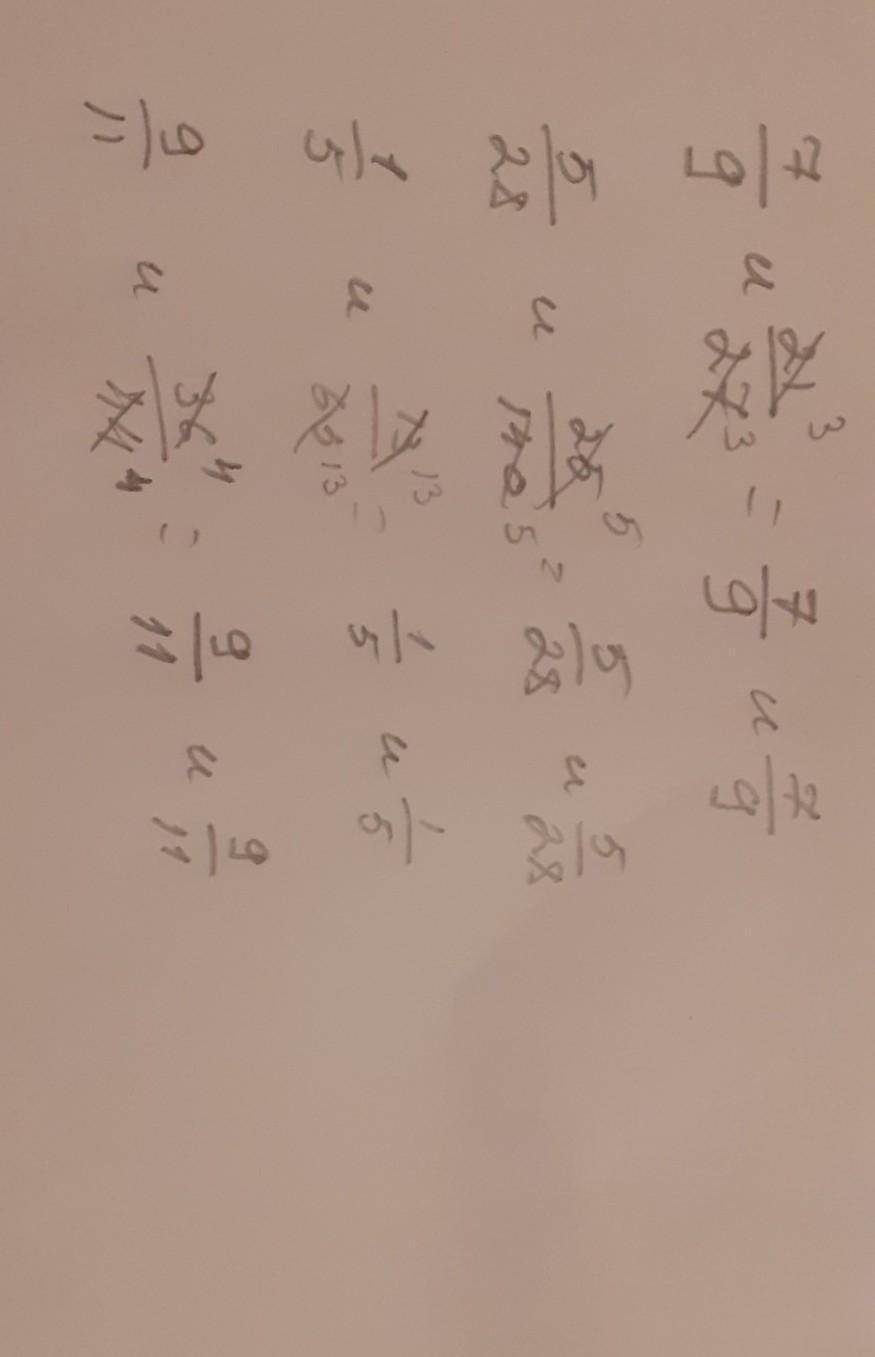 7/9 и 21/27 3 3 = 7/9 и 7/9
5/28 и 25/140 5 5 = 5/28 и 5/28
1/5 и 13/65 13 13 = 1/5 и 1/5
9/11 и 36/44 4 4 = 9/11 и 9/11